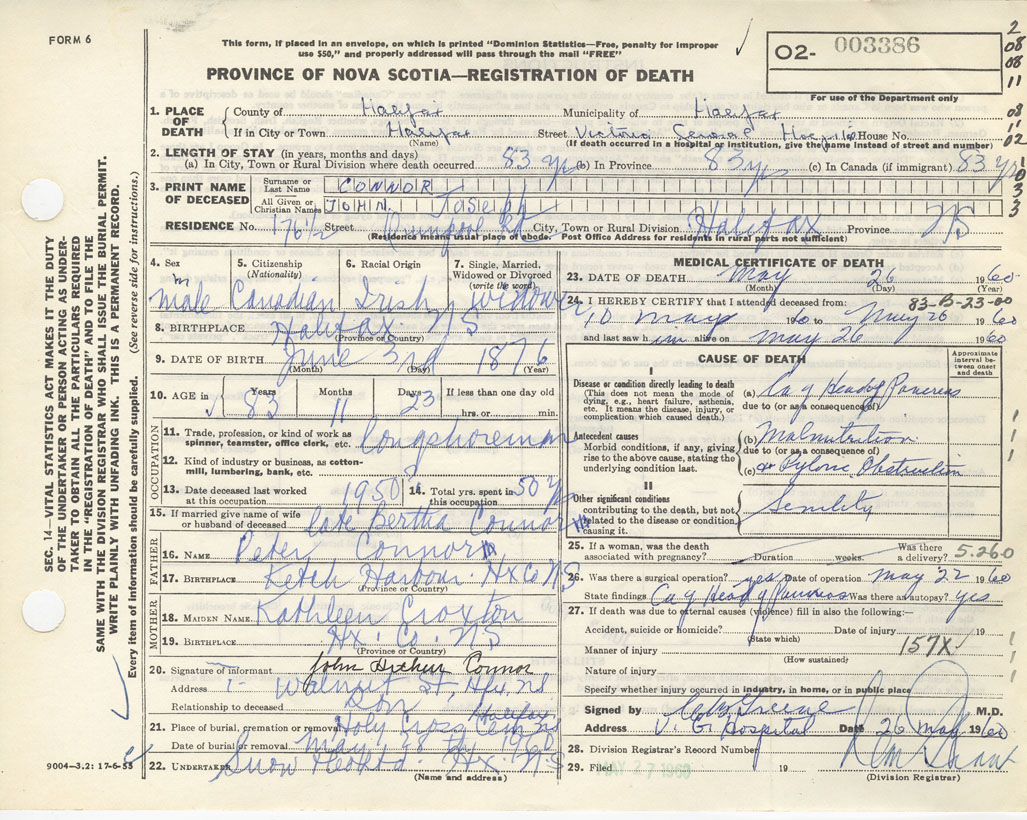 FORM 6
This form, if placed in an envelope, on which is printed "Dominion Statistics—Free, penalty for improper
use $50," and properly addressed will pass through the mail "FREE"
PROVINCE OF NOVA SCOTIA—REGISTRATION OF DEATH
O2- 003386
For use of the Department only
2
08
08
11
08
11
02
1
0
3
3
3
SEC. 14—VITAL STATISTICS ACT MAKES IT THE DUTY
OF THE UNDERTAKER OR PERSON ACTING AS UNDER-
TAKER TO OBTAIN ALL THE PARTICULARS REQUIRED
IN THE "REGISTRATION OF DEATH" AND TO FILE THE
SAME WITH THE DIVISION REGISTRAR WHO SHALL ISSUE THE BURIAL PERMIT.
WRITE PLAINLY WITH UNFADING INK. THIS IS A PERMANENT RECORD.
Every item of information should be carefully supplied. (See reverse side for instructions.)
1. PLACE OF DEATH
County of Halifax Municipality of Halifax
If in City or Town Halifax Street Victoria General Hospital House No.
(Name) (If death occurred in a hospital or institution, give the name instead of street and number)
2. LENGTH OF STAY (in years, months and days)
(a) In City, Town or Rural Division where death occurred 83 yrs (b) In Province 83 yrs (c) In Canada (if immigrant) 83 yrs
3. PRINT NAME OF DECEASED
Surname or Last Name CONNOR
All Given or Christian Names JOHN Joseph
RESIDENCE No. 176½ Street Quinpool Rd City, Town or Rural Division Halifax Province NS
(Residence means usual place of abode. Post Office Address for residents in rural parts not sufficient)
4. Sex male
5. Citizenship (Nationality) Canadian
6. Racial Origin Irish
7. Single, Married, Widowed or Divorced (write the word) widower
8. BIRTHPLACE Halifax NS
(Province or Country)
9. DATE OF BIRTH June 3rd 1876
(Month) (Day) (Year)
10. AGE in Years 83 Months 11 Days 23 If less than one day old
hrs. or min.
OCCUPATION
11. Trade, profession, or kind of work as spinner, teamster, office clerk, etc. longshoreman
12. Kind of industry or business, as cotton-mill, lumbering, bank, etc.
13. Date deceased last worked at this occupation 1950 14. Total yrs. spent in this occupation 50 yrs
15. If married give name of wife or husband of deceased late Bertha Connor
FATHER
16. NAME Peter Connor
17. BIRTHPLACE Ketch Harbour Hx Co NS
(Province or Country)
MOTHER
18. MAIDEN NAME Kathleen Croxton
19. BIRTHPLACE Hx. Co. NS
(Province or Country)
20. Signature of informant John Arthur Connor
Address Walnut St, Hfx, NS
Relationship to deceased Son
21. Place of burial, cremation or removal Holy Cross Cem Halifax NS
Date of burial or removal May 28th 1960
22. UNDERTAKER Snow Hx. NS
(Name and address)
9004—3.2: 17-6-53
MEDICAL CERTIFICATE OF DEATH
23. DATE OF DEATH May 26 1960
(Month) (Day) (Year)
83-B-23-00
24. I HEREBY CERTIFY that I attended deceased from:
10 May 1960 to May 26 1960
and last saw him alive on May 26 1960
CAUSE OF DEATH
Approximate interval between onset and death
I
Disease or condition directly leading to death
(This does not mean the mode of dying, e.g., heart failure, asthenia, etc. It means the disease, injury, or complication which caused death.)
(a) Ca of Head of Pancreas
due to (or as a consequence of)
Antecedent causes
Morbid conditions, if any, giving rise to the above cause, stating the underlying condition last.
(b) Malnutrition
due to (or as a consequence of)
(c) Pyloric Obstruction
II
Other significant conditions
contributing to the death, but not related to the disease or condition causing it.
Senility
25. If a woman, was the death associated with pregnancy? Duration weeks. Was there a delivery? 5.260
26. Was there a surgical operation? yes Date of operation May 22 1960
State findings Ca of Head of Pancreas Was there an autopsy? yes
27. If death was due to external causes (violence) fill in also the following:—
Accident, suicide or homicide? Date of injury 19
(State which)
Manner of injury 157X
(How sustained)
Nature of injury
Specify whether injury occurred in industry, in home, or in public place
Signed by Greene M.D.
Address V. G. Hospital Date 26 May 1960
28. Division Registrar's Record Number
29. Filed MAY 27 1960 19
(Division Registrar)